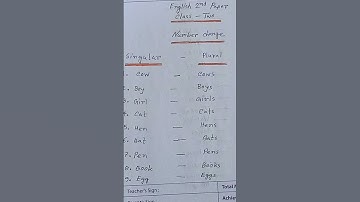 English 2nd Paper
Class - Two
Number change
Singular - Plural
1. Cow - Cows
2. Boy - Boys
3. Girl - Girls
4. Cat - Cats
5. Hen - Hens
6. Bat - Bats
7. Pen - Pens
8. Book - Books
9. Egg - Eggs
Teacher's Sign.: Total